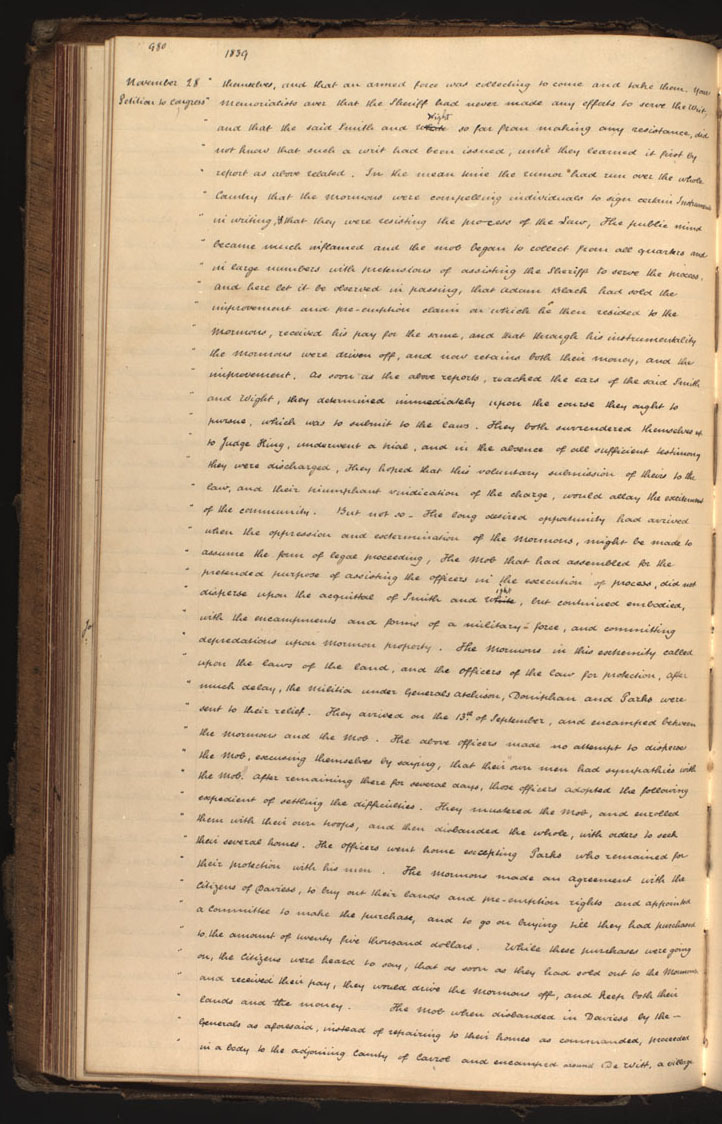 980 1839
November 28 " themselves, and that an armed force was collecting to come and take them. Your
Petition to Congress " Memorialists aver that the Sheriff had never made any efforts to serve the Writ,
" and that the said Smith and White Wight so far from making any resistance, did
" not know that such a writ had been issued, until they learned it first by
" report as above related. In the mean time the rumor had run over the whole
" Country that the Mormons were compelling individuals to sign certain Instruments
" in writing, & that they were resisting the process of the Law, The public mind
" became much inflamed and the mob began to collect from all quarters and
" in large numbers with pretensions of assisting the Sheriff to serve the process.
" and here let it be observed in passing, that Adam Black had sold the
" improvement and pre-emption claim on which he then resided to the
" Mormons, received his pay for the same, and that through his instrumentality
" the Mormons were driven off, and now retains both their money, and the
" improvement. As soon as the above reports, reached the ears of the said Smith
" and Wight, they determined immediately upon the course they ought to
" pursue, which was to submit to the laws. They both surrendered themselves up
" to Judge King, underwent a trial, and in the absence of all sufficient testimony
" they were discharged, They hoped that this voluntary submission of theirs to the
" law, and their triumphant vindication of the charge, would allay the excitement
" of the community. But not so - The long desired opportunity had arrived
" when the oppression and extermination of the Mormons, might be made to
" assume the form of legal proceeding, The Mob that had assembled for the
" pretended purpose of assisting the officers in the execution of process, did not
" disperse upon the acquittal of Smith and White ight, but continued embodied,
" with the encampments and forms of a military-force, and committing
" depredations upon Mormon property. The Mormons in this extremity called
" upon the laws of the land, and the officers of the law for protection, after
" much delay, the Militia under Generals Atchison, Doniphan and Parks were
" sent to their relief. They arrived on the 13th. of September, and encamped between
" the Mormons and the Mob. The above officers made no attempt to disperse
" the Mob, excusing themselves by saying, that their own men had sympathies with
" the Mob. After remaining there for several days, those officers adopted the following
" expedient of settling the difficulties. They mustered the Mob, and enrolled
" them with their own troops, and then disbanded the whole, with orders to seek
" their several homes. The officers went home excepting Parks who remained for
" their protection with his men. The Mormons made an agreement with the
" Citizens of Daviess, to buy out their lands and pre-emption rights and appointed
" a Committee to make the purchase, and to go on buying till they had purchased
" to the amount of twenty five thousand dollars. While these purchases were going
" on, the Citizens were heard to say, that as soon as they had sold out to the Mormons
" and received their pay, they would drive the Mormons off, and keep both their
" lands and the money. The Mob when disbanded in Daviess by the -
" Generals as aforesaid, instead of repairing to their homes as commanded, proceeded
" in a body to the adjoining County of Carrol and encamped around De Witt, a village